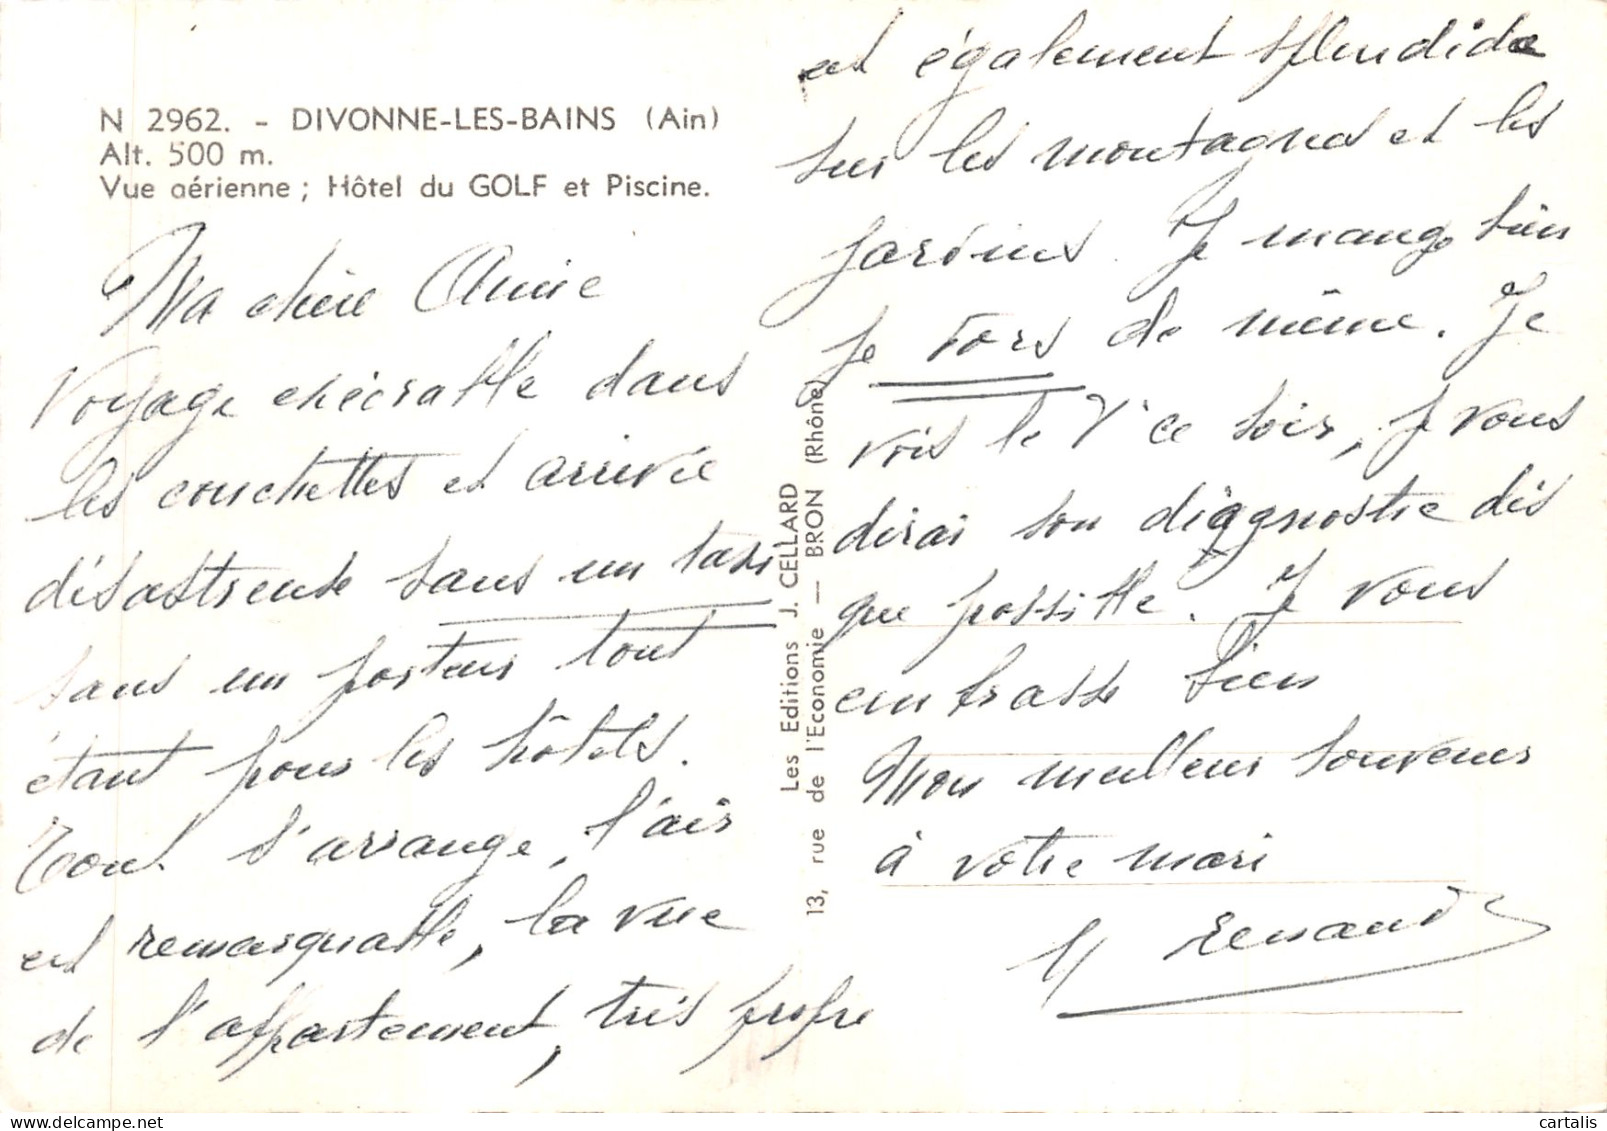 N 2962. - DIVONNE-LES-BAINS (Ain)
Alt. 500 m.
Vue aérienne ; Hôtel du GOLF et Piscine.
Ma chère Annie
Voyage exécrable dans
les couchettes et arrivée
désastreuse sans un taxi
sans un porteur tout
étant pour les hôtels.
Tout s'arrange, l'air
est remarquable, la vue
de l'appartement, très propre
est également splendide
sur les montagnes et les
jardins. Je mange bien
je dors de même. Je
vois le Dr ce soir, je vous
dirai son diagnostic dès
que possible. Je vous
embrasse bien
Mon meilleur souvenir
à votre mari
Renaud
Les Editions J. CELLARD
13, rue de l'Economie — BRON (Rhône)
cartalis